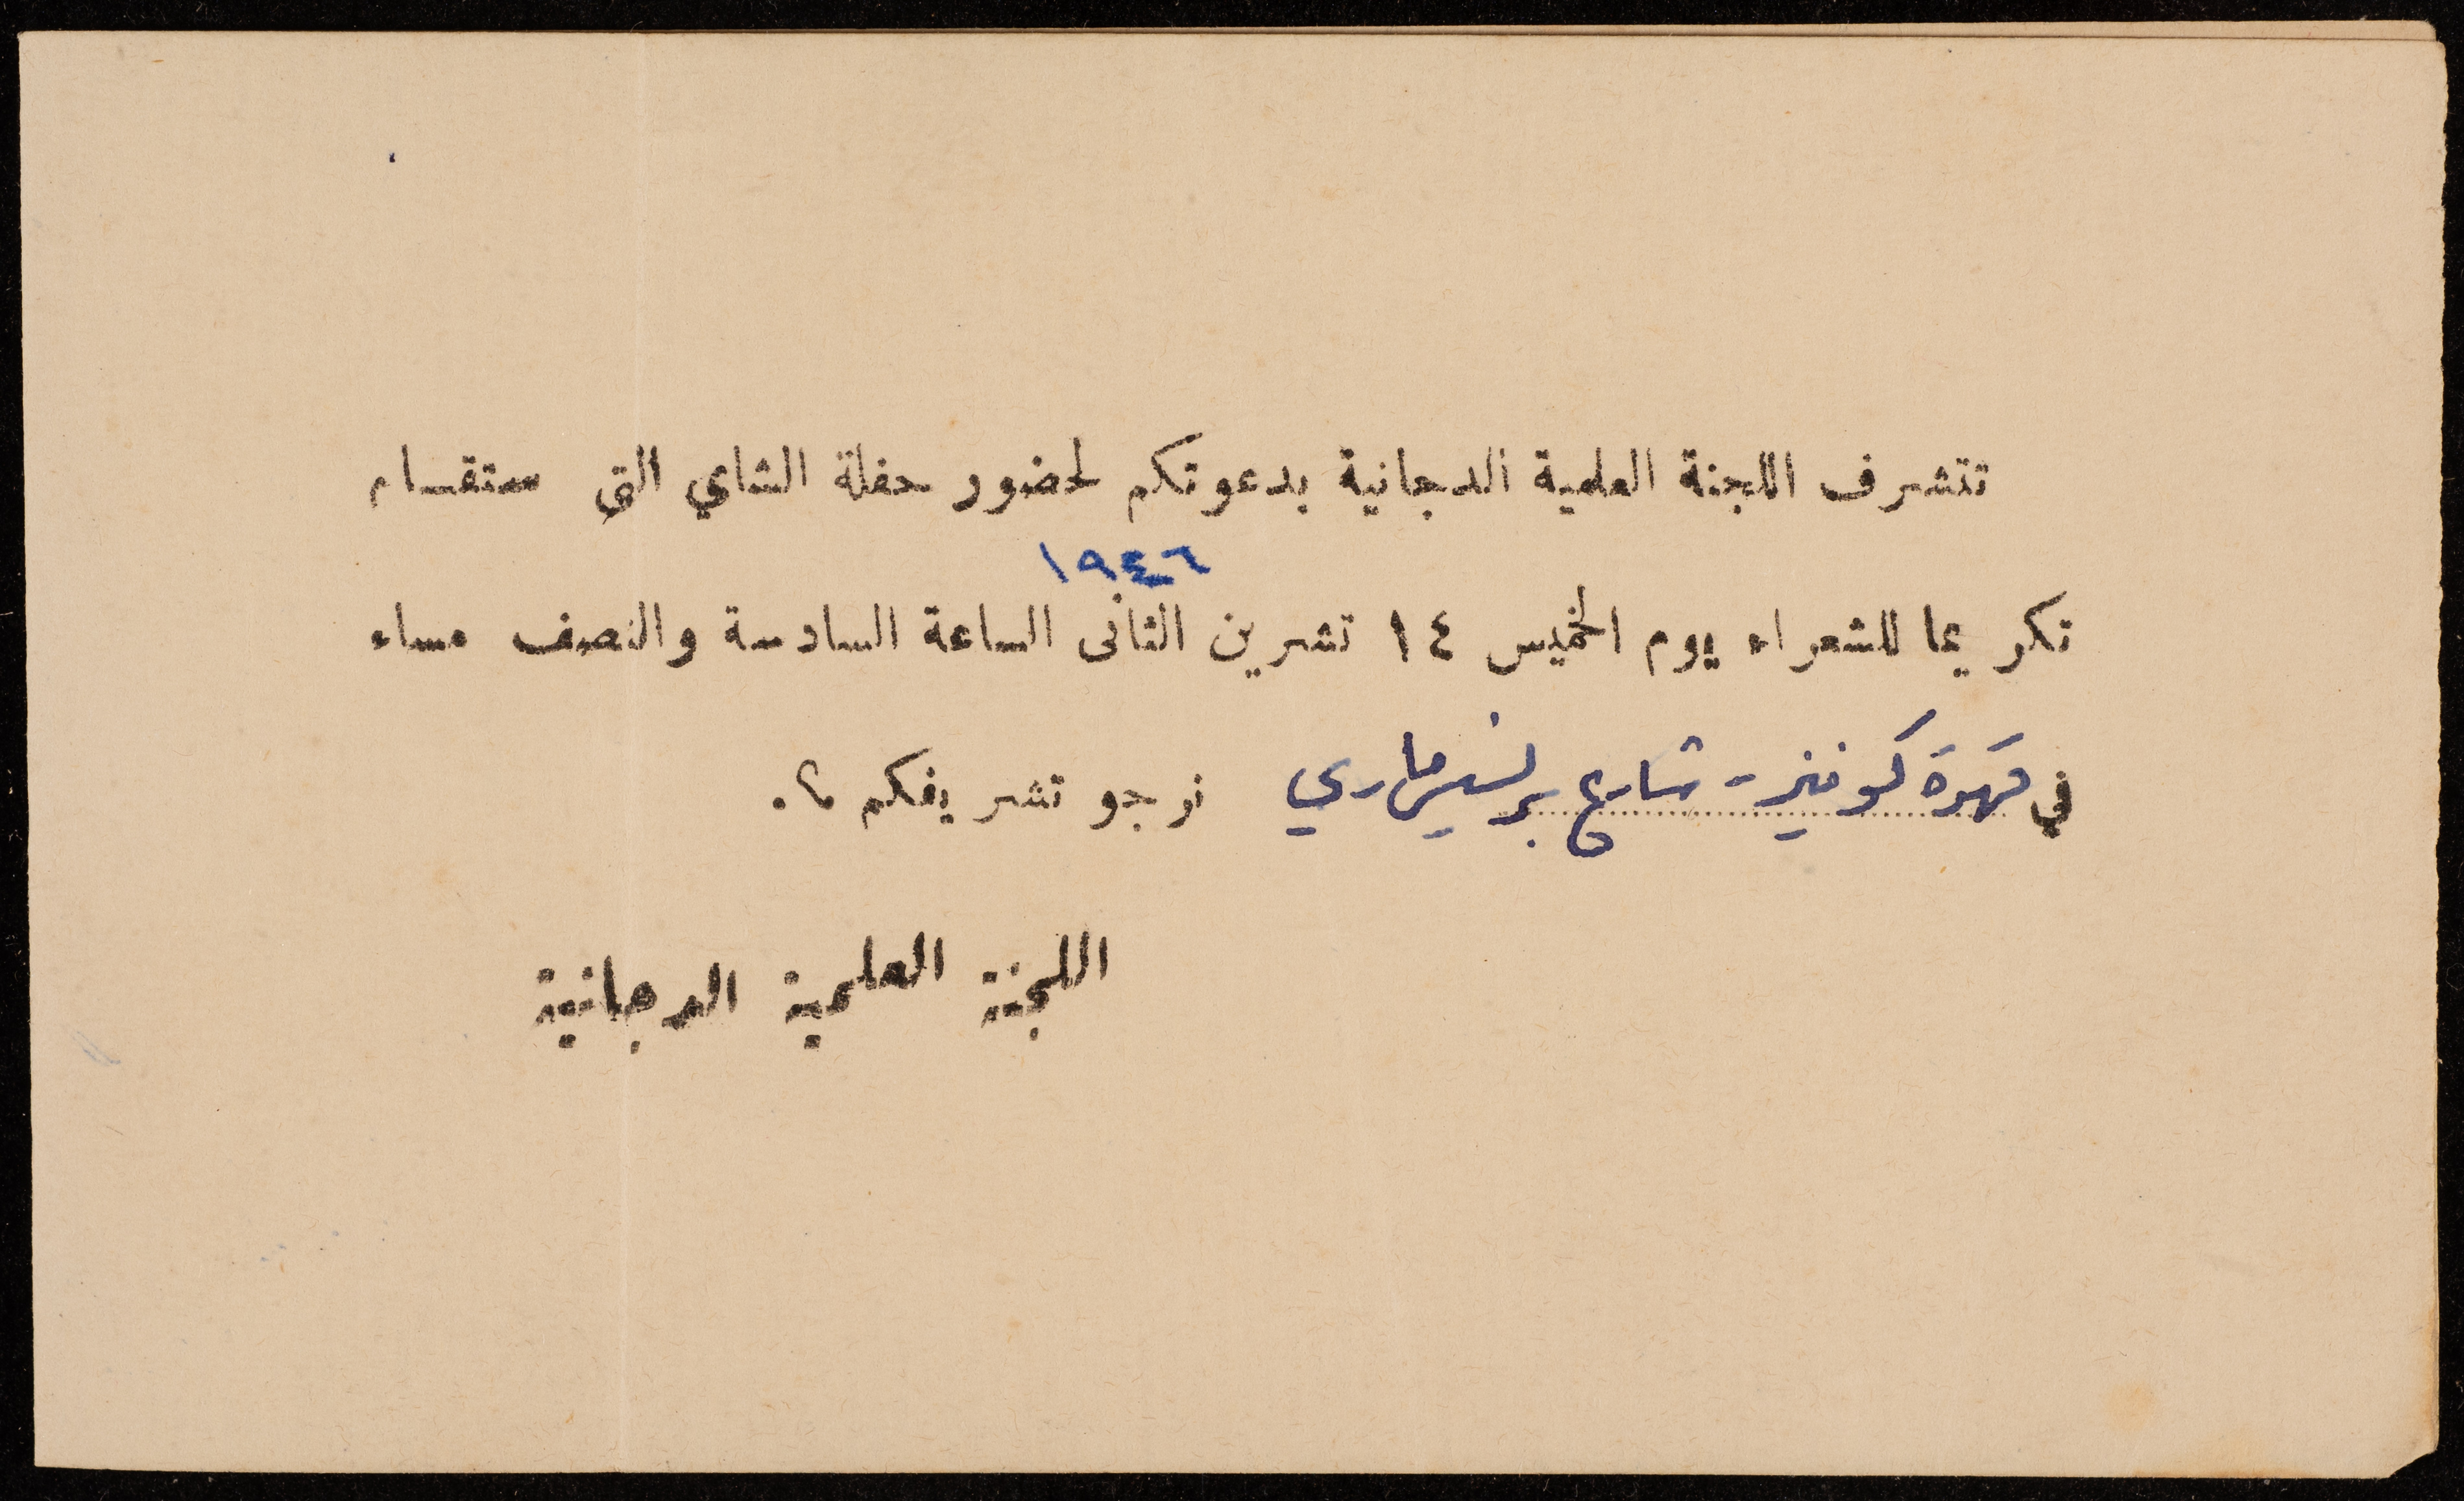 تتشرف اللجنة العلمية الدجانية بدعوتكم لحضور حفلة الشاي التى ستقسام
١٩٤٦
تكريما للشعراء يوم الخميس ١٤ تشرين الثانى الساعة السادسة والنصف مساء
في قهوة كوفنير - شارع برنسيس ماري نرجو تشريفكم ؟.
اللجنة العلمية الدجانية